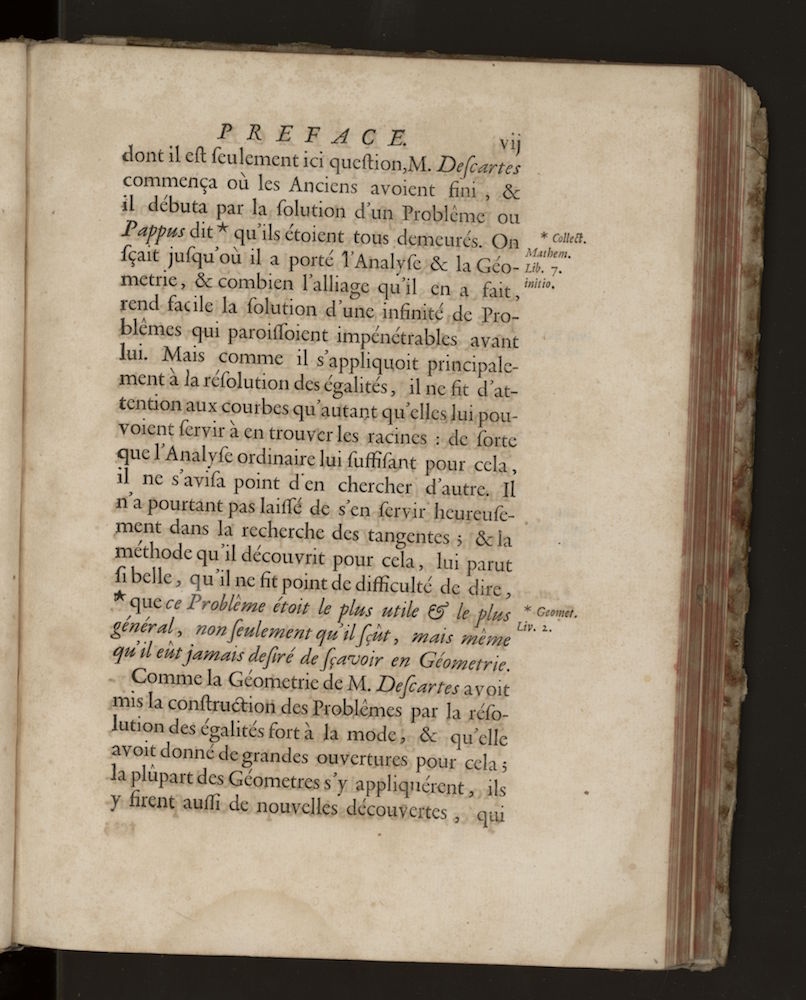 PREFACE. vij
dont il eſt ſeulement ici queſtion, M. Deſcartes
commença où les Anciens avoient fini, &
il débuta par la ſolution d'un Problême ou
Pappus dit * qu'ils étoient tous demeurés. On
ſçait juſqu'où il a porté l'Analyſe & la Géo-
metrie, & combien l'alliage qu'il en a fait,
rend facile la ſolution d'une infinité de Pro-
blêmes qui paroiſſoient impénétrables avant
lui. Mais comme il s'appliquoit principale-
ment à la réſolution des égalités, il ne fit d'at-
tention aux courbes qu'autant qu'elles lui pou-
voient ſervir à en trouver les racines : de ſorte
que l'Analyſe ordinaire lui ſuffiſant pour cela,
il ne s'aviſa point d'en chercher d'autre. Il
n'a pourtant pas laiſſé de s'en ſervir heureuſe-
ment dans la recherche des tangentes ; & la
méthode qu'il découvrit pour cela, lui parut
ſi belle, qu'il ne fit point de difficulté de dire,
* que ce Problême étoit le plus utile & le plus
général, non ſeulement qu'il ſçût, mais même
qu'il eût jamais deſiré de ſçavoir en Géometrie.
Comme la Géometrie de M. Deſcartes avoit
mis la conſtruction des Problêmes par la réſo-
lution des égalités fort à la mode, & qu'elle
avoit donné de grandes ouvertures pour cela ;
la plûpart des Géometres s'y appliquérent, ils
y firent auſſi de nouvelles découvertes, qui
* Collect.
Mathem.
Lib. 7.
initio.
* Geomet.
Liv. 2.